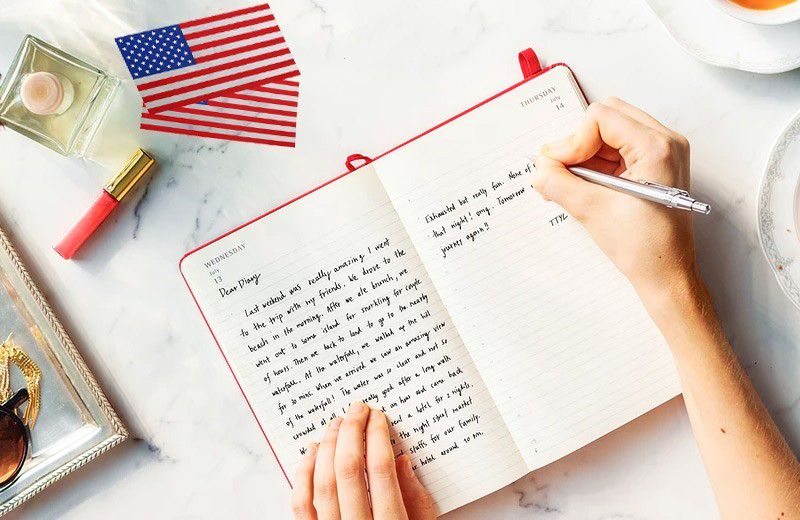 WEDNESDAY
July
13
Dear Diary
Last weekend was really amazing. I went
to the trip with my friends. We drove to the
beach in the morning. After we ate brunch, we
went out to some island for snorkling for couple
of hours. Then we back to land to go to the nearby
waterfall. At the waterfall, we walked up the hill
for 30 mins. When we arrived we saw an amazing view
of the waterfall! The water was so clear and not so
crowded at all. really good after a long walk
an hour and came back
a hotel for 2 nights.
to the night street market
and stuffs for our family.
hotel around 10 PM.
THURSDAY
July
14
Exhausted but really fun. None of
that night! omg. Tomorrow
journey again!!
TTYL